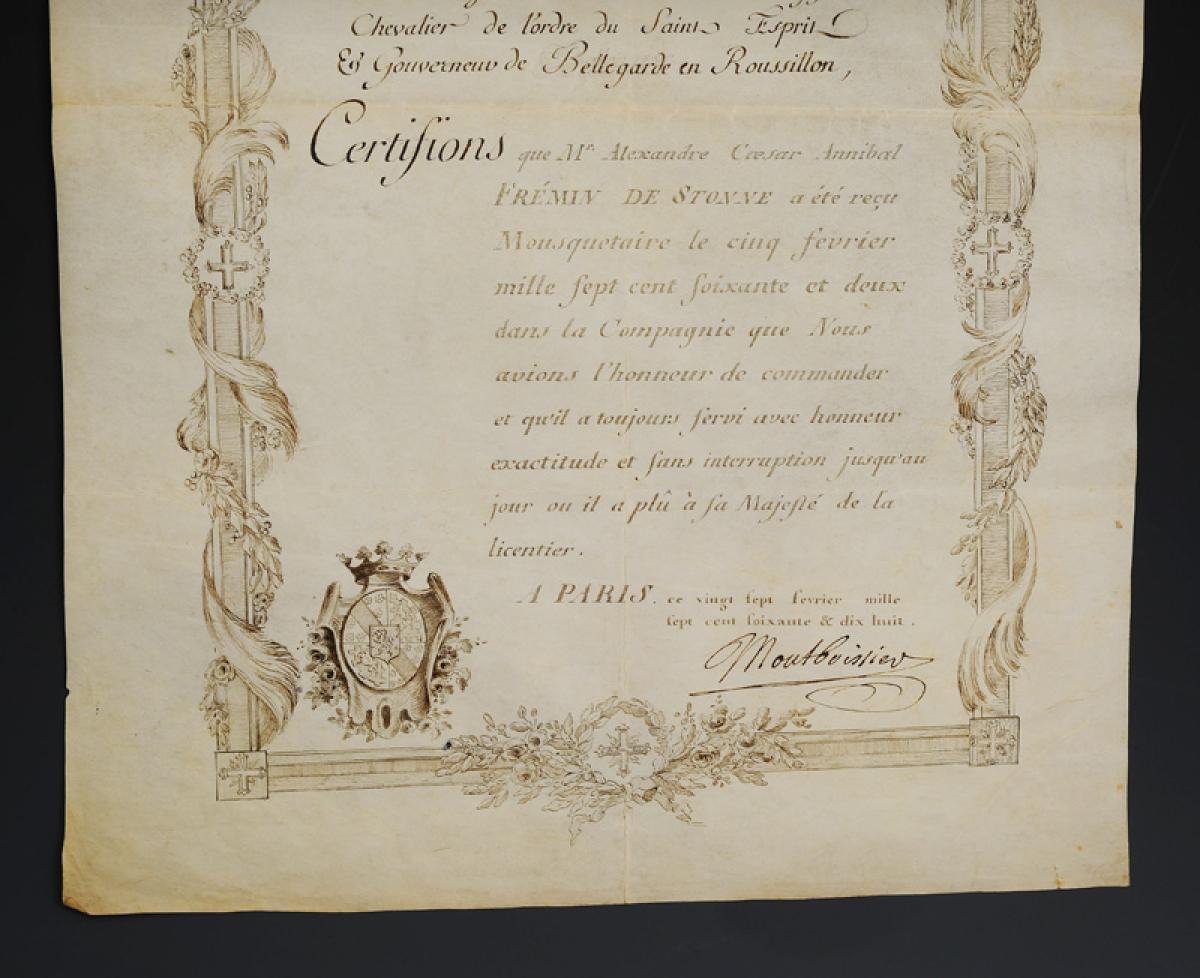 Chevalier de l'ordre du Saint Esprit
& Gouverneur de Bellegarde en Roussillon,
Certifions que Mr. Alexandre Cæsar Annibal
FRÉMIN DE STONNE a été reçu
Mousquetaire le cinq fevrier
mille ſept cent ſoixante et deux
dans la Compagnie que Nous
avions l'honneur de commander
et qu'il a toujours ſervi avec honneur
exactitude et ſans interruption jusqu'au
jour ou il a plû à ſa Majeſté de la
licentier.
A PARIS. ce vingt ſept fevrier mille
ſept cent ſoixante & dix huit.
Montboissier